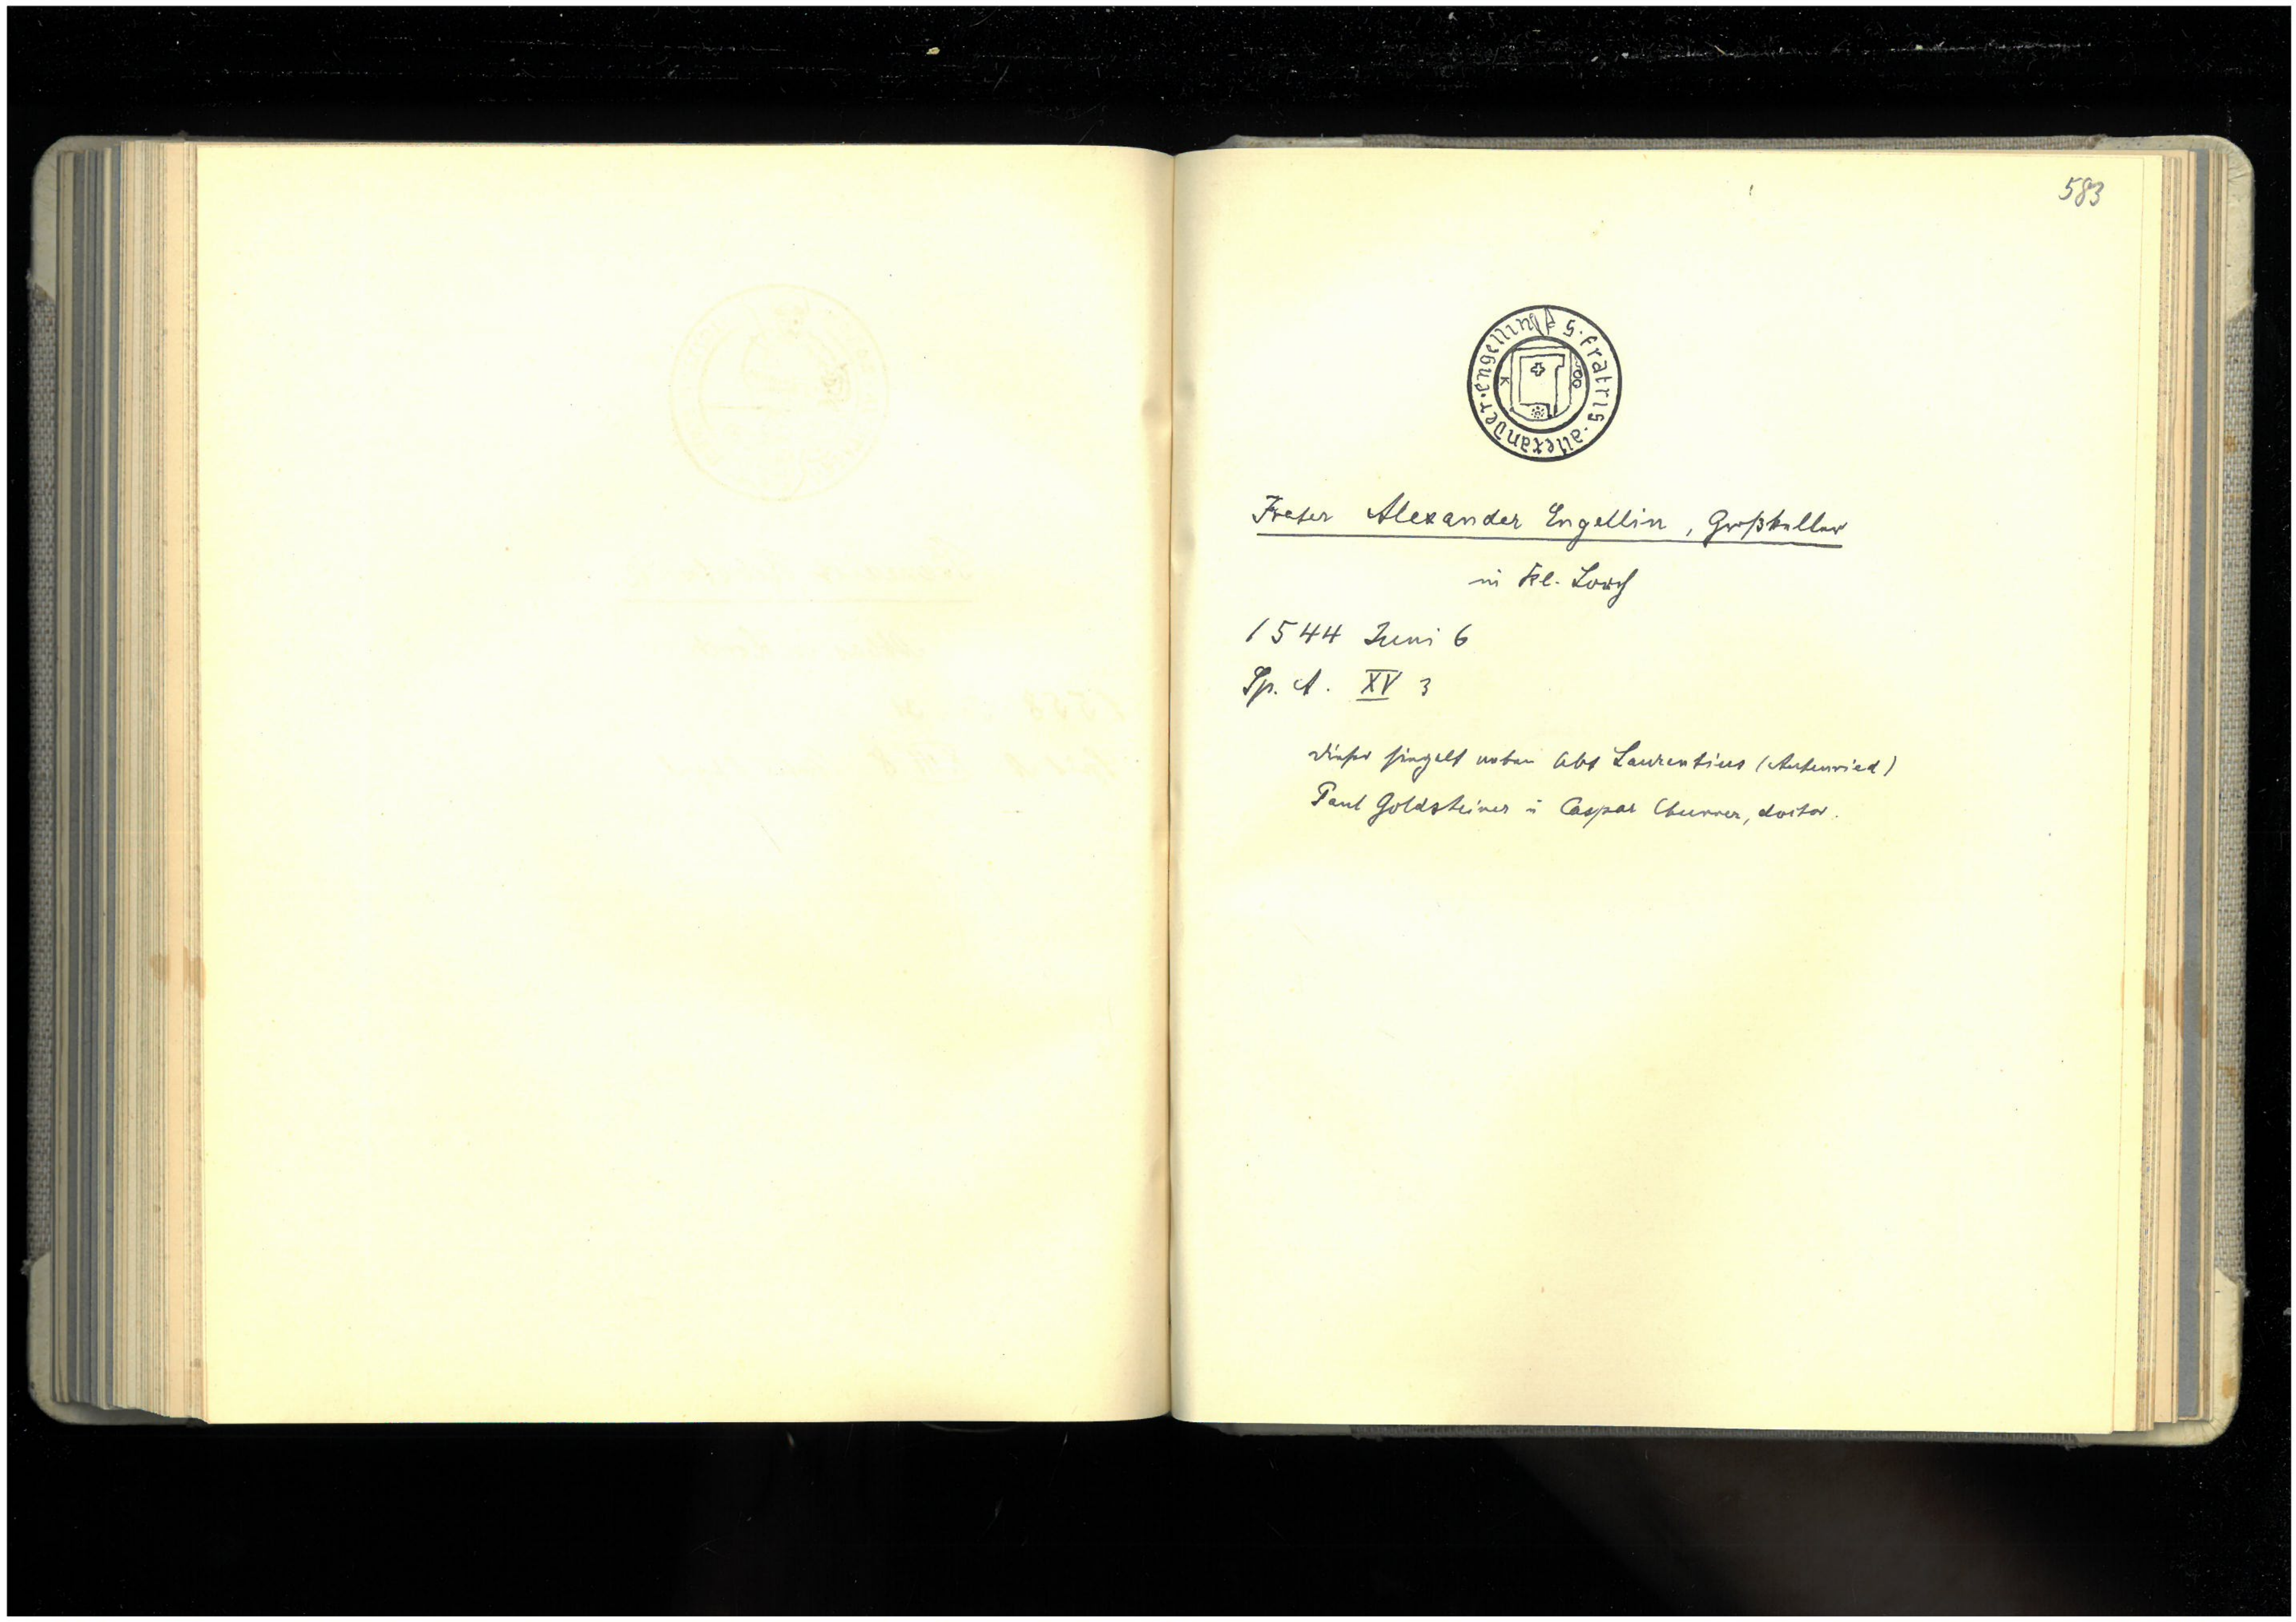 583
S · fratris · allexander · engellin
Frater Alexander Engellin, Großkeller
in Kl. Lorch
1544 Juni 6
Sp. A. XV 3
dieser siegelt neben Abt Laurentius (Autenried)
Paul Goldsteiner u Caspar Churrer, doctor.